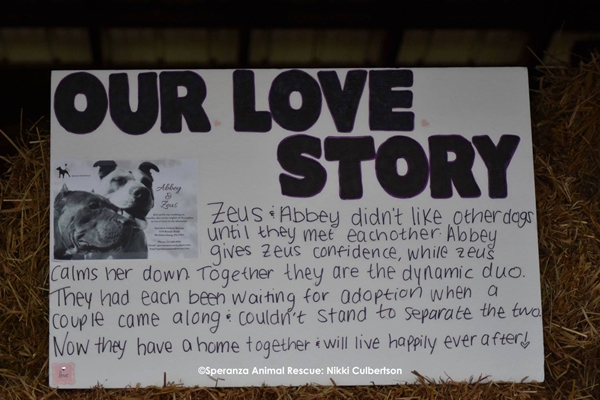 OUR LOVE
STORY
Abbey
&
Zeus
Zeus & Abbey didn't like other dogs
until they met eachother. Abbey
gives Zeus confidence, while Zeus
calms her down. Together they are the dynamic duo.
They had each been waiting for adoption when a
couple came along & couldn't stand to separate the two.
Now they have a home together & will live happily ever after!
©Speranza Animal Rescue: Nikki Culbertson